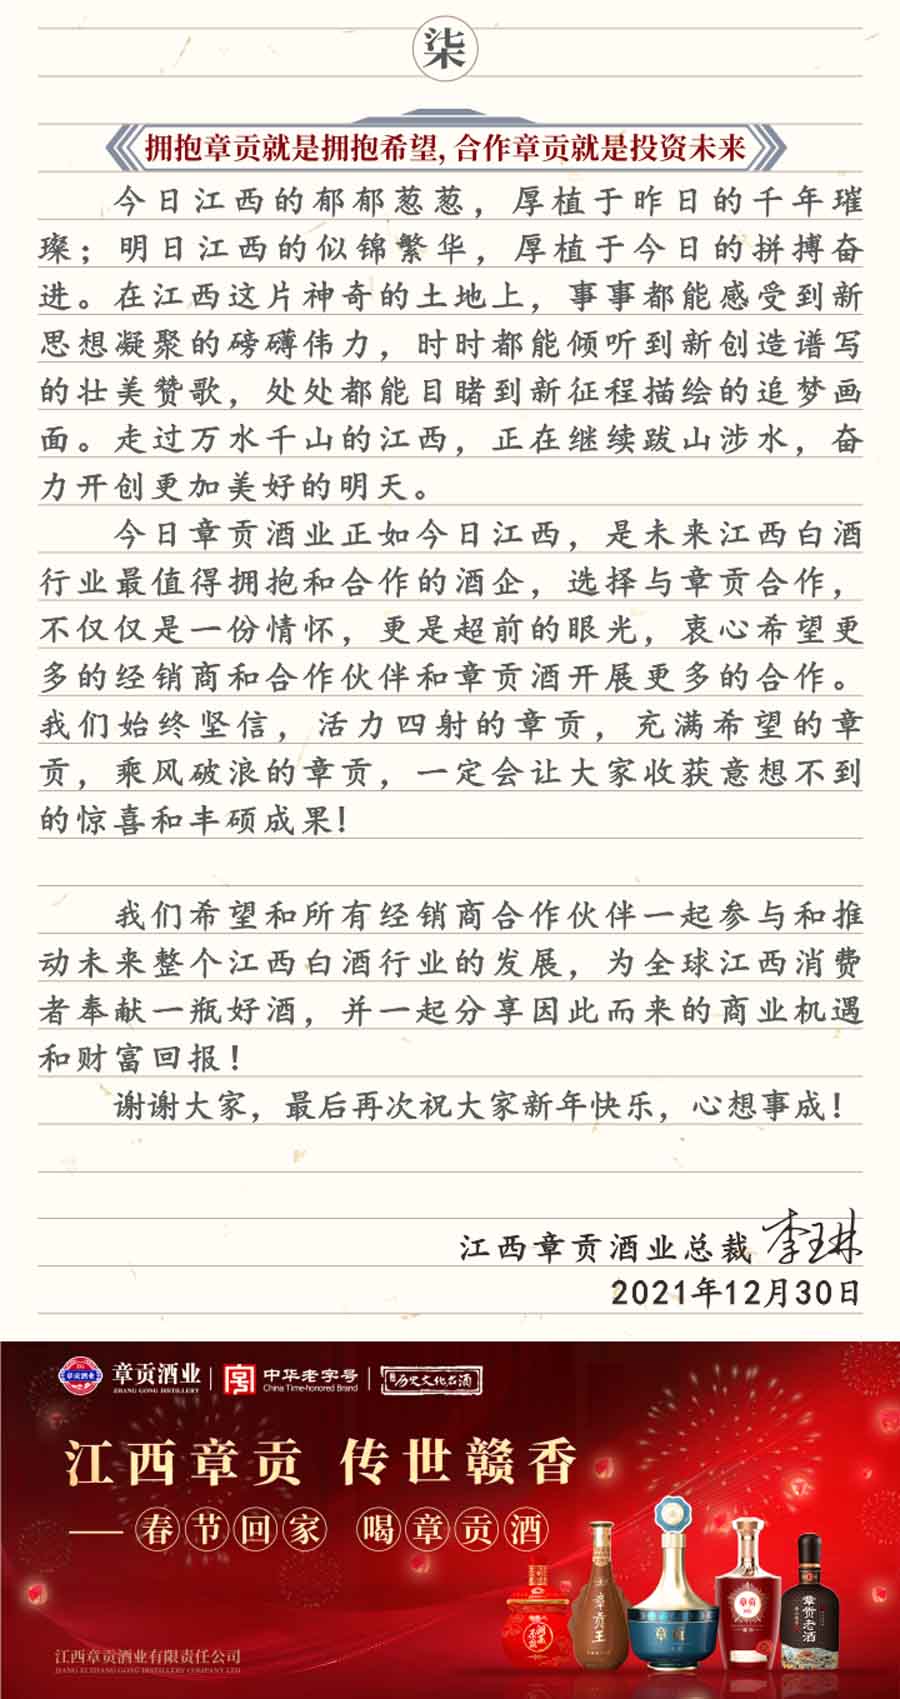 柒
拥抱章贡就是拥抱希望,合作章贡就是投资未来
今日江西的郁郁葱葱，厚植于昨日的千年璀
璨；明日江西的似锦繁华，厚植于今日的拼搏奋
进。在江西这片神奇的土地上，事事都能感受到新
思想凝聚的磅礴伟力，时时都能倾听到新创造谱写
的壮美赞歌，处处都能目睹到新征程描绘的追梦画
面。走过万水千山的江西，正在继续跋山涉水，奋
力开创更加美好的明天。
今日章贡酒业正如今日江西，是未来江西白酒
行业最值得拥抱和合作的酒企，选择与章贡合作，
不仅仅是一份情怀，更是超前的眼光，衷心希望更
多的经销商和合作伙伴和章贡酒开展更多的合作。
我们始终坚信，活力四射的章贡，充满希望的章
贡，乘风破浪的章贡，一定会让大家收获意想不到
的惊喜和丰硕成果!
我们希望和所有经销商合作伙伴一起参与和推
动未来整个江西白酒行业的发展，为全球江西消费
者奉献一瓶好酒，并一起分享因此而来的商业机遇
和财富回报！
谢谢大家，最后再次祝大家新年快乐，心想事成！
江西章贡酒业总裁 李王林
2021年12月30日
章贡酒业 章贡酒业 中华老字号 历史文化名酒
ZHANG GONG DISTILLERY China Time-honored Brand
江西章贡 传世赣香
——春节回家 喝章贡酒
章贡王 章贡 章贡 章贡老酒
江西章贡酒业有限责任公司
JIANG XI ZHANG GONG DISTILLERY COMPANY LTD